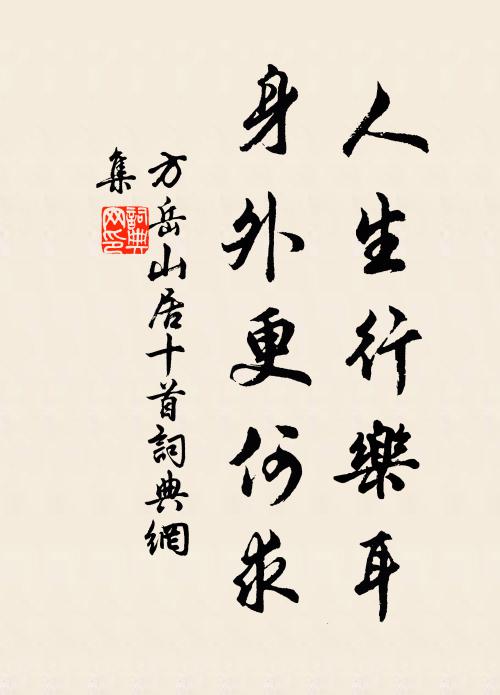 人生行樂耳
身外更何求
方岳山居十首詞典網
集
詞典网印